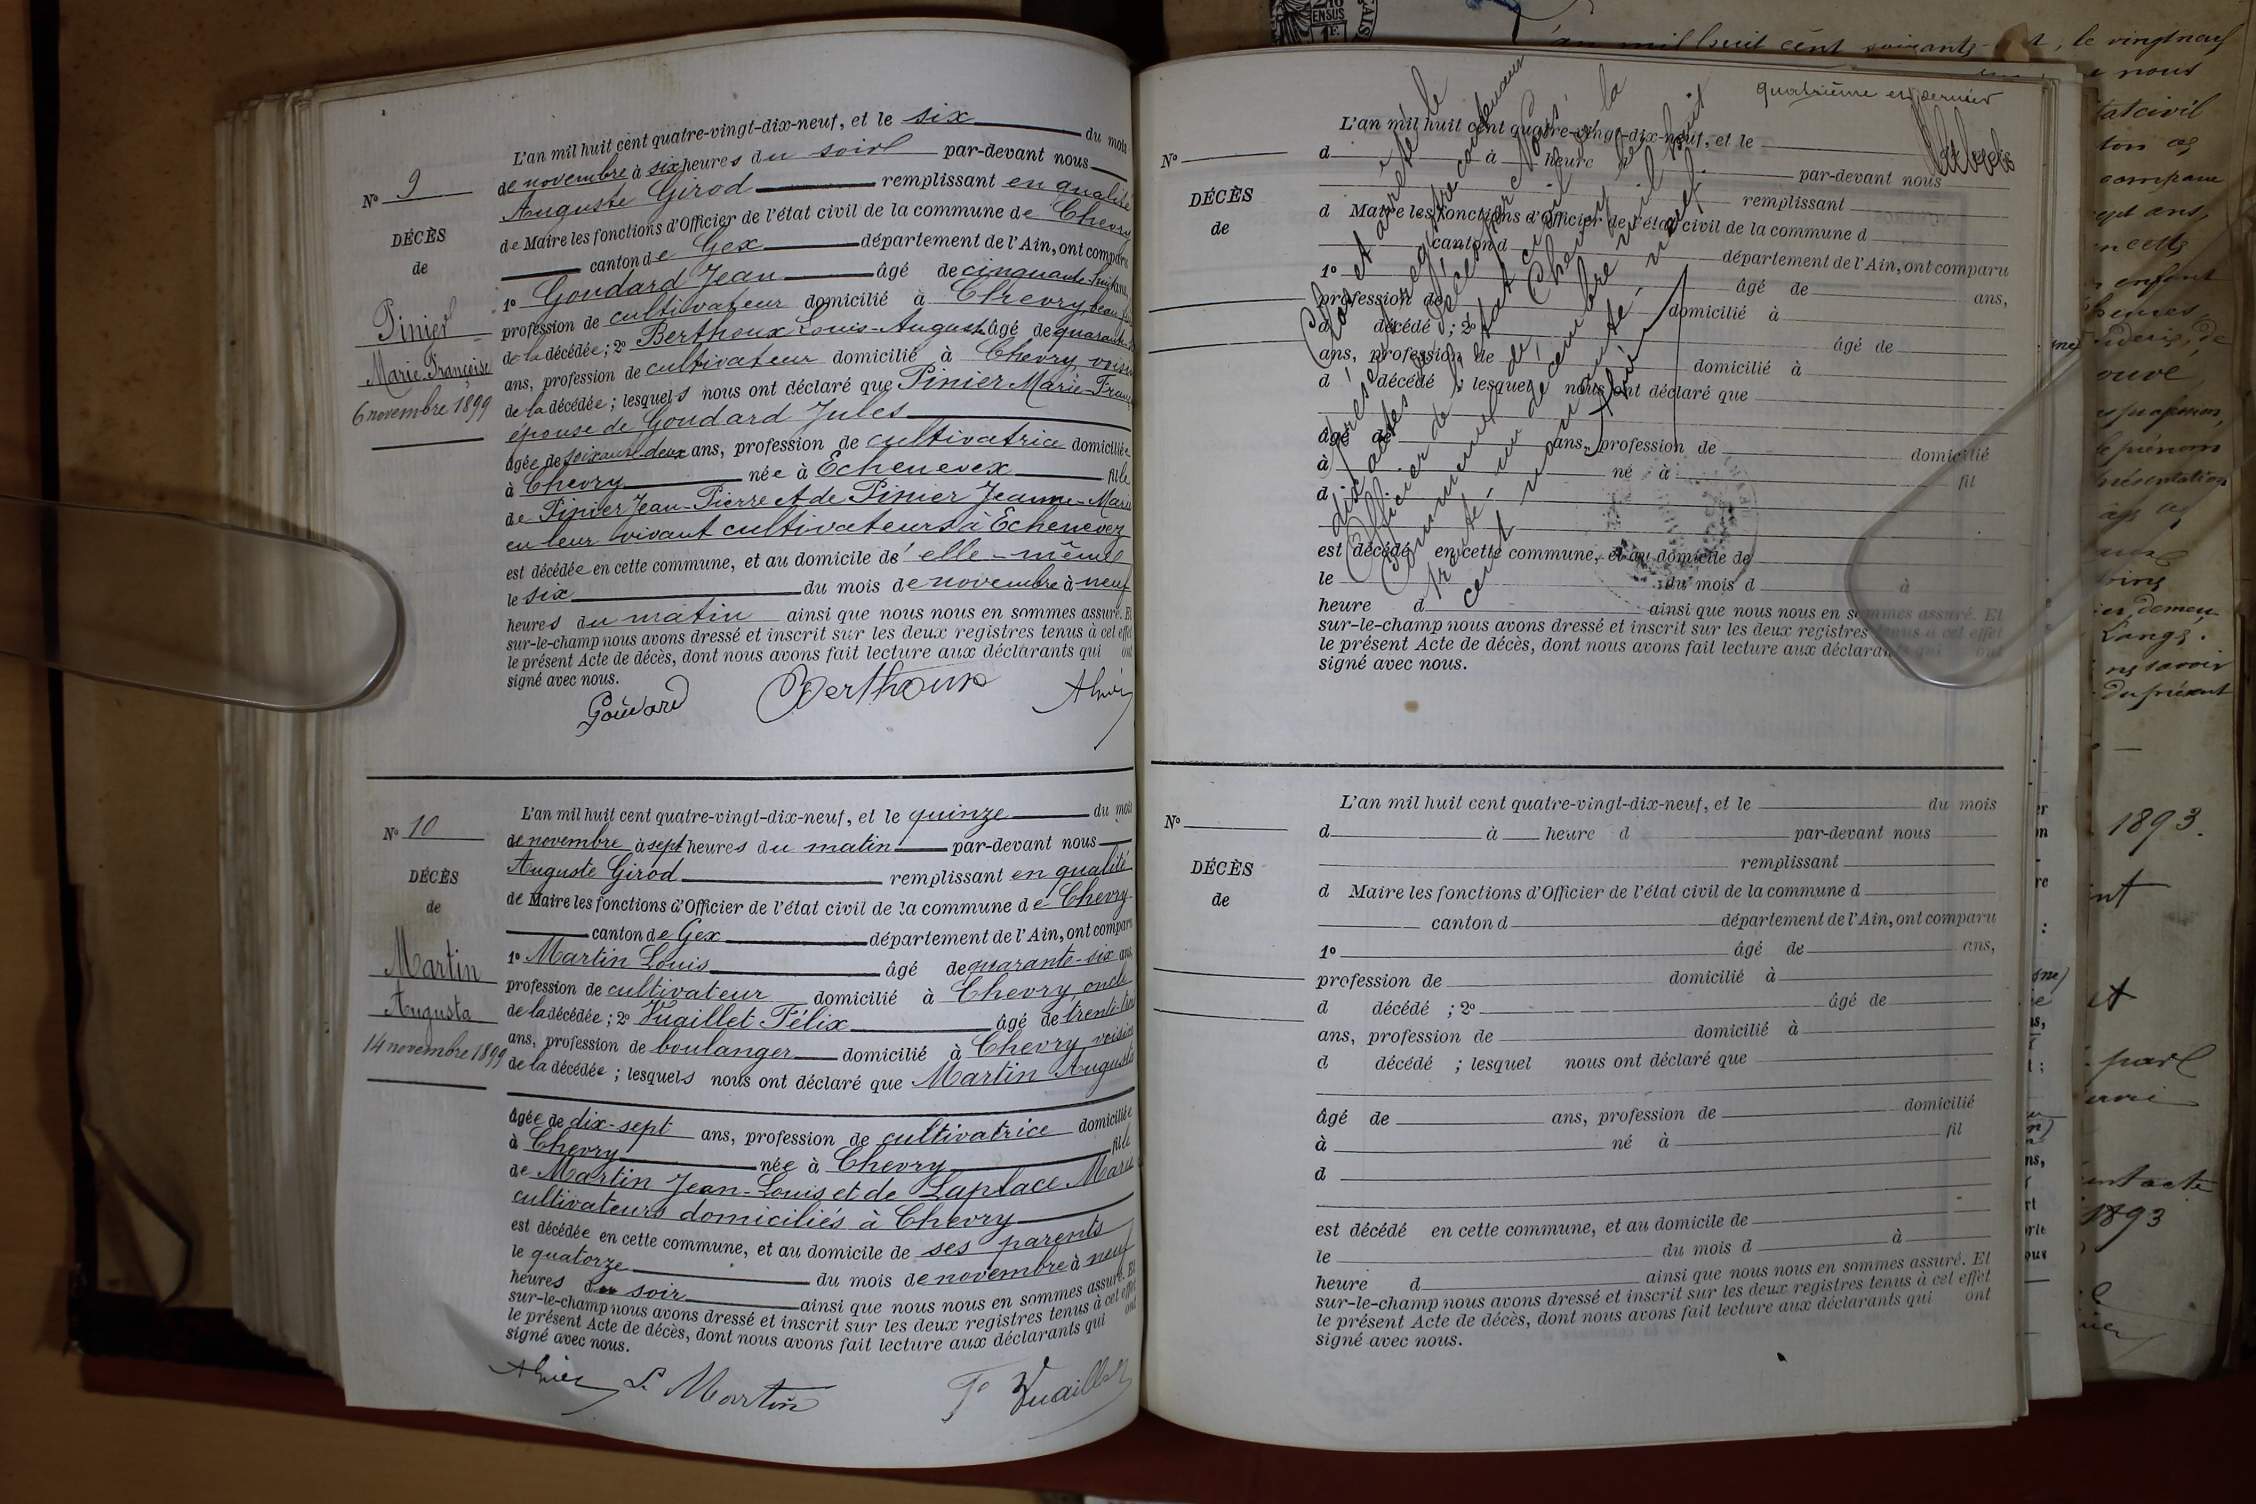 L'an mil huit cent quatre-vingt-dix-neuf, et le six du mois
de novembre à six heures du soir par-devant nous
Auguste Girod remplissant en qualité
de Maire les fonctions d'Officier de l'état civil de la commune de Chevry
canton de Gex département de l'Ain, ont comparu
1º Goudard Jean âgé de cinquante-huit ans,
profession de cultivateur domicilié à Chevry, beau
de la décédée; 2º Berthoux Louis-August âgé de quarante
ans, profession de cultivateur domicilié à Chevry, voisin
de la décédée; lesquels nous ont déclaré que Pinier Marie-Fran
épouse de Goudard Jules
âgée de soixante-deux ans, profession de cultivatrice domiciliée
à Chevry née à Echenevex fille
de Pinier Jean-Pierre et de Pinier Jeanne-Marie
en leur vivant cultivateurs à Echenevex
est décédée en cette commune, et au domicile de elle-même
le six du mois de novembre à neuf
heures du matin ainsi que nous nous en sommes assuré. Et
sur-le-champ nous avons dressé et inscrit sur les deux registres tenus à cet effet
le présent Acte de décès, dont nous avons fait lecture aux déclarants qui ont
signé avec nous.
Nº 9
DÉCÈS
de
Pinier
Marie Françoise
6 novembre 1899
Goudard Berthoux
L'an mil huit cent quatre-vingt-dix-neuf, et le quinze du mois
de novembre à sept heures du matin par-devant nous
Auguste Girod remplissant en qualité
de Maire les fonctions d'Officier de l'état civil de la commune de Chevry
canton de Gex département de l'Ain, ont comparu
1º Martin Louis âgé de quarante-six ans,
profession de cultivateur domicilié à Chevry, oncle
de la décédée; 2º Vuaillet Félix âgé de
ans, profession de boulanger domicilié à Chevry, voisin
de la décédée; lesquels nous ont déclaré que Martin Augusta
âgée de dix-sept ans, profession de cultivatrice domiciliée
à Chevry née à Chevry fille
de Martin Jean-Louis et de Laplace Marie
cultivateurs domiciliés à Chevry
est décédée en cette commune, et au domicile de ses parents
le quatorze du mois de novembre à neuf
heures du soir ainsi que nous nous en sommes assuré. Et
sur-le-champ nous avons dressé et inscrit sur les deux registres tenus à cet effet
le présent Acte de décès, dont nous avons fait lecture aux déclarants qui ont
signé avec nous.
Nº 10
DÉCÈS
de
Martin
Augusta
14 novembre 1899
L. Martin F Vuaillet
quatrième et dernier
L'an mil huit cent quatre-vingt-dix-neuf, et le
d à heure d par-devant nous
remplissant
d Maire les fonctions d'Officier de l'état civil de la commune d
canton d département de l'Ain, ont comparu
1º âgé de ans,
profession de domicilié à
d décédé ; 2º âgé de
ans, profession de domicilié à
d décédé ; lesquel nous ont déclaré que
âgé de ans, profession de domicilié
à né à fil
d
est décédé en cette commune, et au domicile de
le du mois d à
heure d ainsi que nous nous en sommes assuré. Et
sur-le-champ nous avons dressé et inscrit sur les deux registres tenus à cet effet
le présent Acte de décès, dont nous avons fait lecture aux déclarants qui ont
signé avec nous.
Nº
DÉCÈS
de
Clos et arrêté le
présent registre contenant
dix actes de décès par Nous
Officier de l'état civil de la
Commune de Chevry le
trente-un décembre mil huit
cent nonante-neuf.
L'an mil huit cent quatre-vingt-dix-neuf, et le du mois
d à heure d par-devant nous
remplissant
d Maire les fonctions d'Officier de l'état civil de la commune d
canton d département de l'Ain, ont comparu
1º âgé de ans,
profession de domicilié à
d décédé ; 2º âgé de
ans, profession de domicilié à
d décédé ; lesquel nous ont déclaré que
âgé de ans, profession de domicilié
à né à fil
d
est décédé en cette commune, et au domicile de
le du mois d à
heure d ainsi que nous nous en sommes assuré. Et
sur-le-champ nous avons dressé et inscrit sur les deux registres tenus à cet effet
le présent Acte de décès, dont nous avons fait lecture aux déclarants qui ont
signé avec nous.
Nº
DÉCÈS
de
an mil huit cent soixante le vingt neuf
nous
1893.
1893